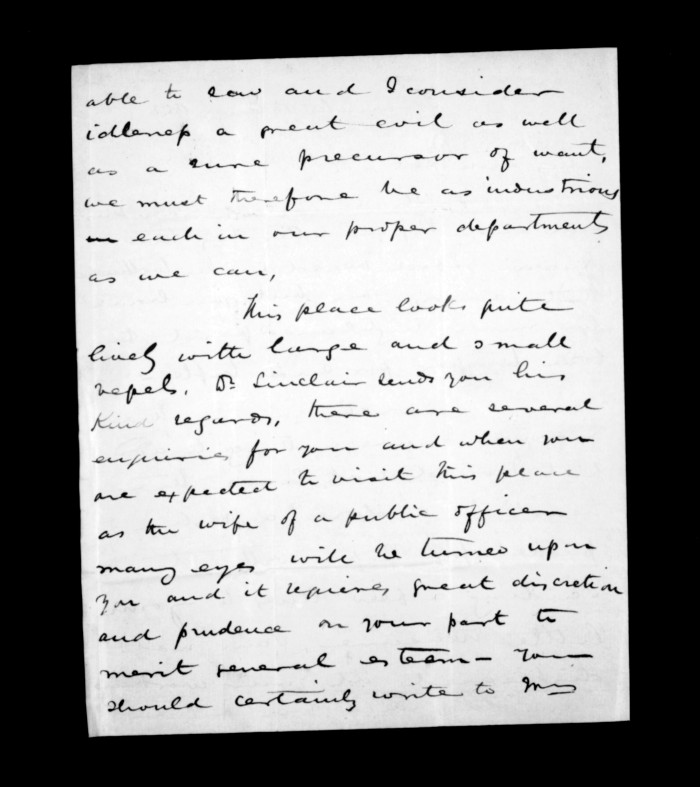 able to sew and I consider
idleness a great evil as well
as a sure precursor of want,
we must therefore be as industrious
in each in our proper departments
as we can,
This place looks quite
lively with large and small
vessels. Dr Sinclair sends you his
Kind regards, there are several
enquiries for you and when you
are expected to visit this place
as the wife of a public officer
many eyes will be turned upon
you and it requires great discretion
and prudence on your part to
merit general esteem - you
should certainly write to Mrs